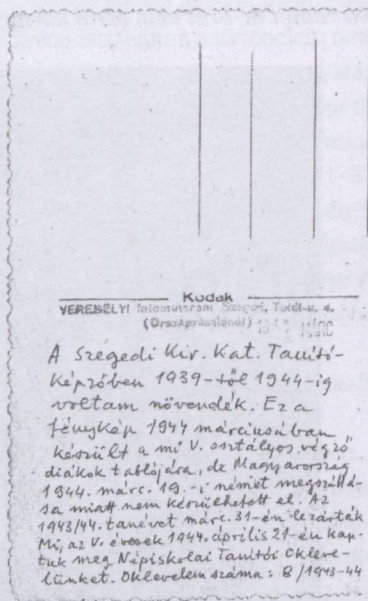 Kodak
VEREBÉLYI fotomuterem Szeged, u. 4.
A Szegedi Kir. Kat. Tanító-
képzőben 1939-től 1944-ig
voltam növendék. Ez a
fénykép 1944 márciusában
készült a mi V. osztályos végző
diákok tablójára, de Magyarország
1944. márc. 19.-i német megszállá-
sa miatt nem készülhetett el. Az
1943/44. tanévet márc. 31-én lezárták
Mi, az V. évesek 1944. április 21-én kap-
tuk meg Népiskolai Tanítói Okleve-
lünket. Oklevelem száma: 8/1943-44